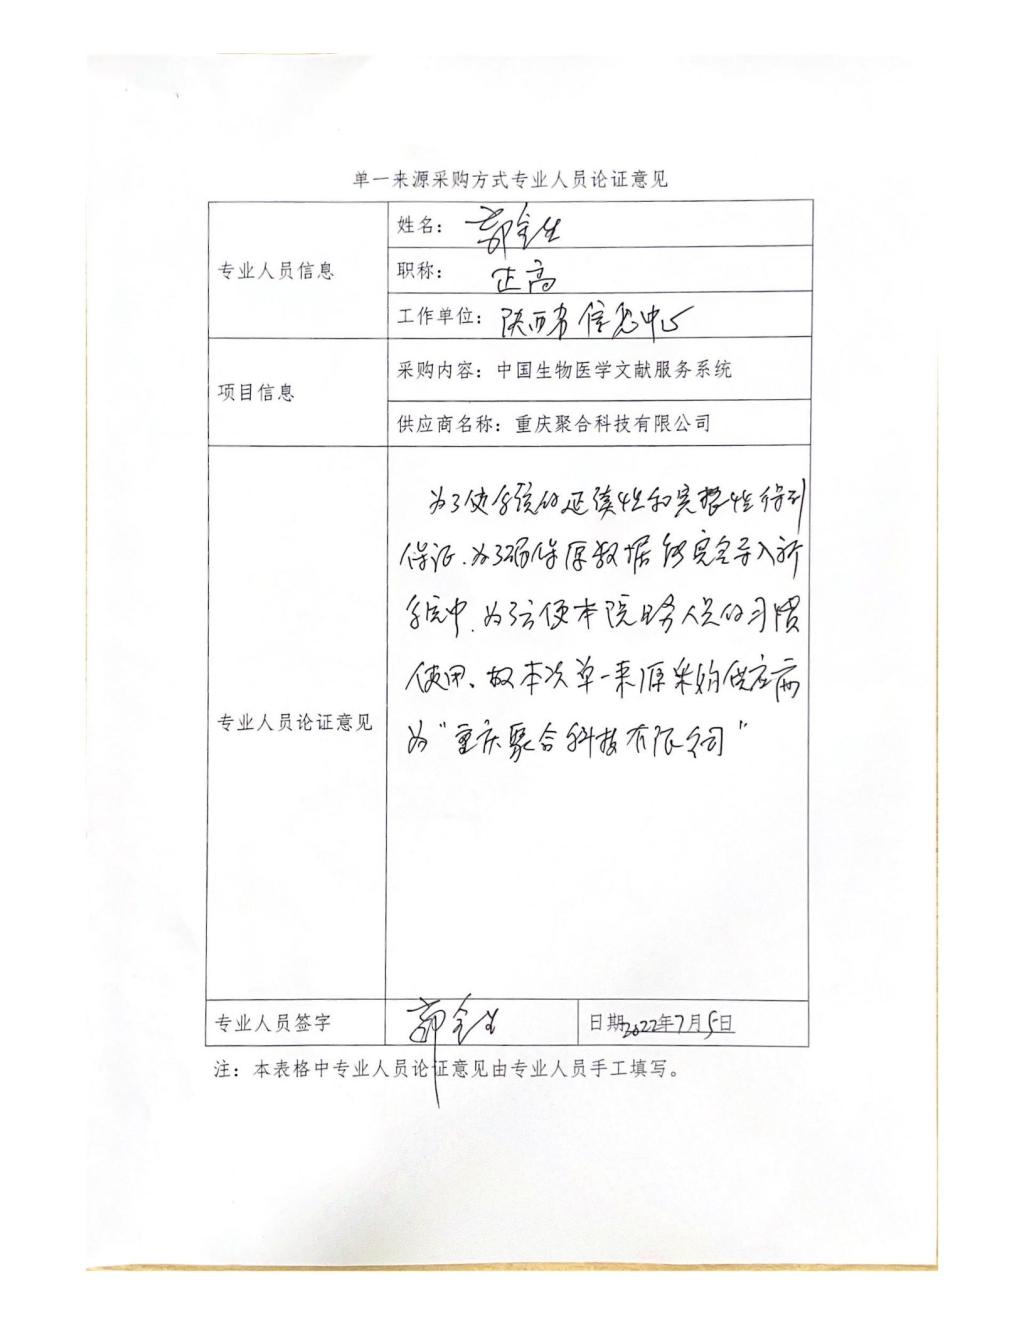 单一来源采购方式专业人员论证意见
专业人员信息
姓名：郭全生
职称：正高
工作单位：陕西省信息中心
项目信息
采购内容：中国生物医学文献服务系统
供应商名称：重庆聚合科技有限公司
专业人员论证意见
为了使系统的延续性和完整性得到
保证、为了确保原数据能完全导入新
系统中、为了方便本院医务人员的习惯
使用、故本次单一来源采购供应商
为“重庆聚合科技有限公司”
专业人员签字
郭全生
日期2022年7月5日
注：本表格中专业人员论证意见由专业人员手工填写。